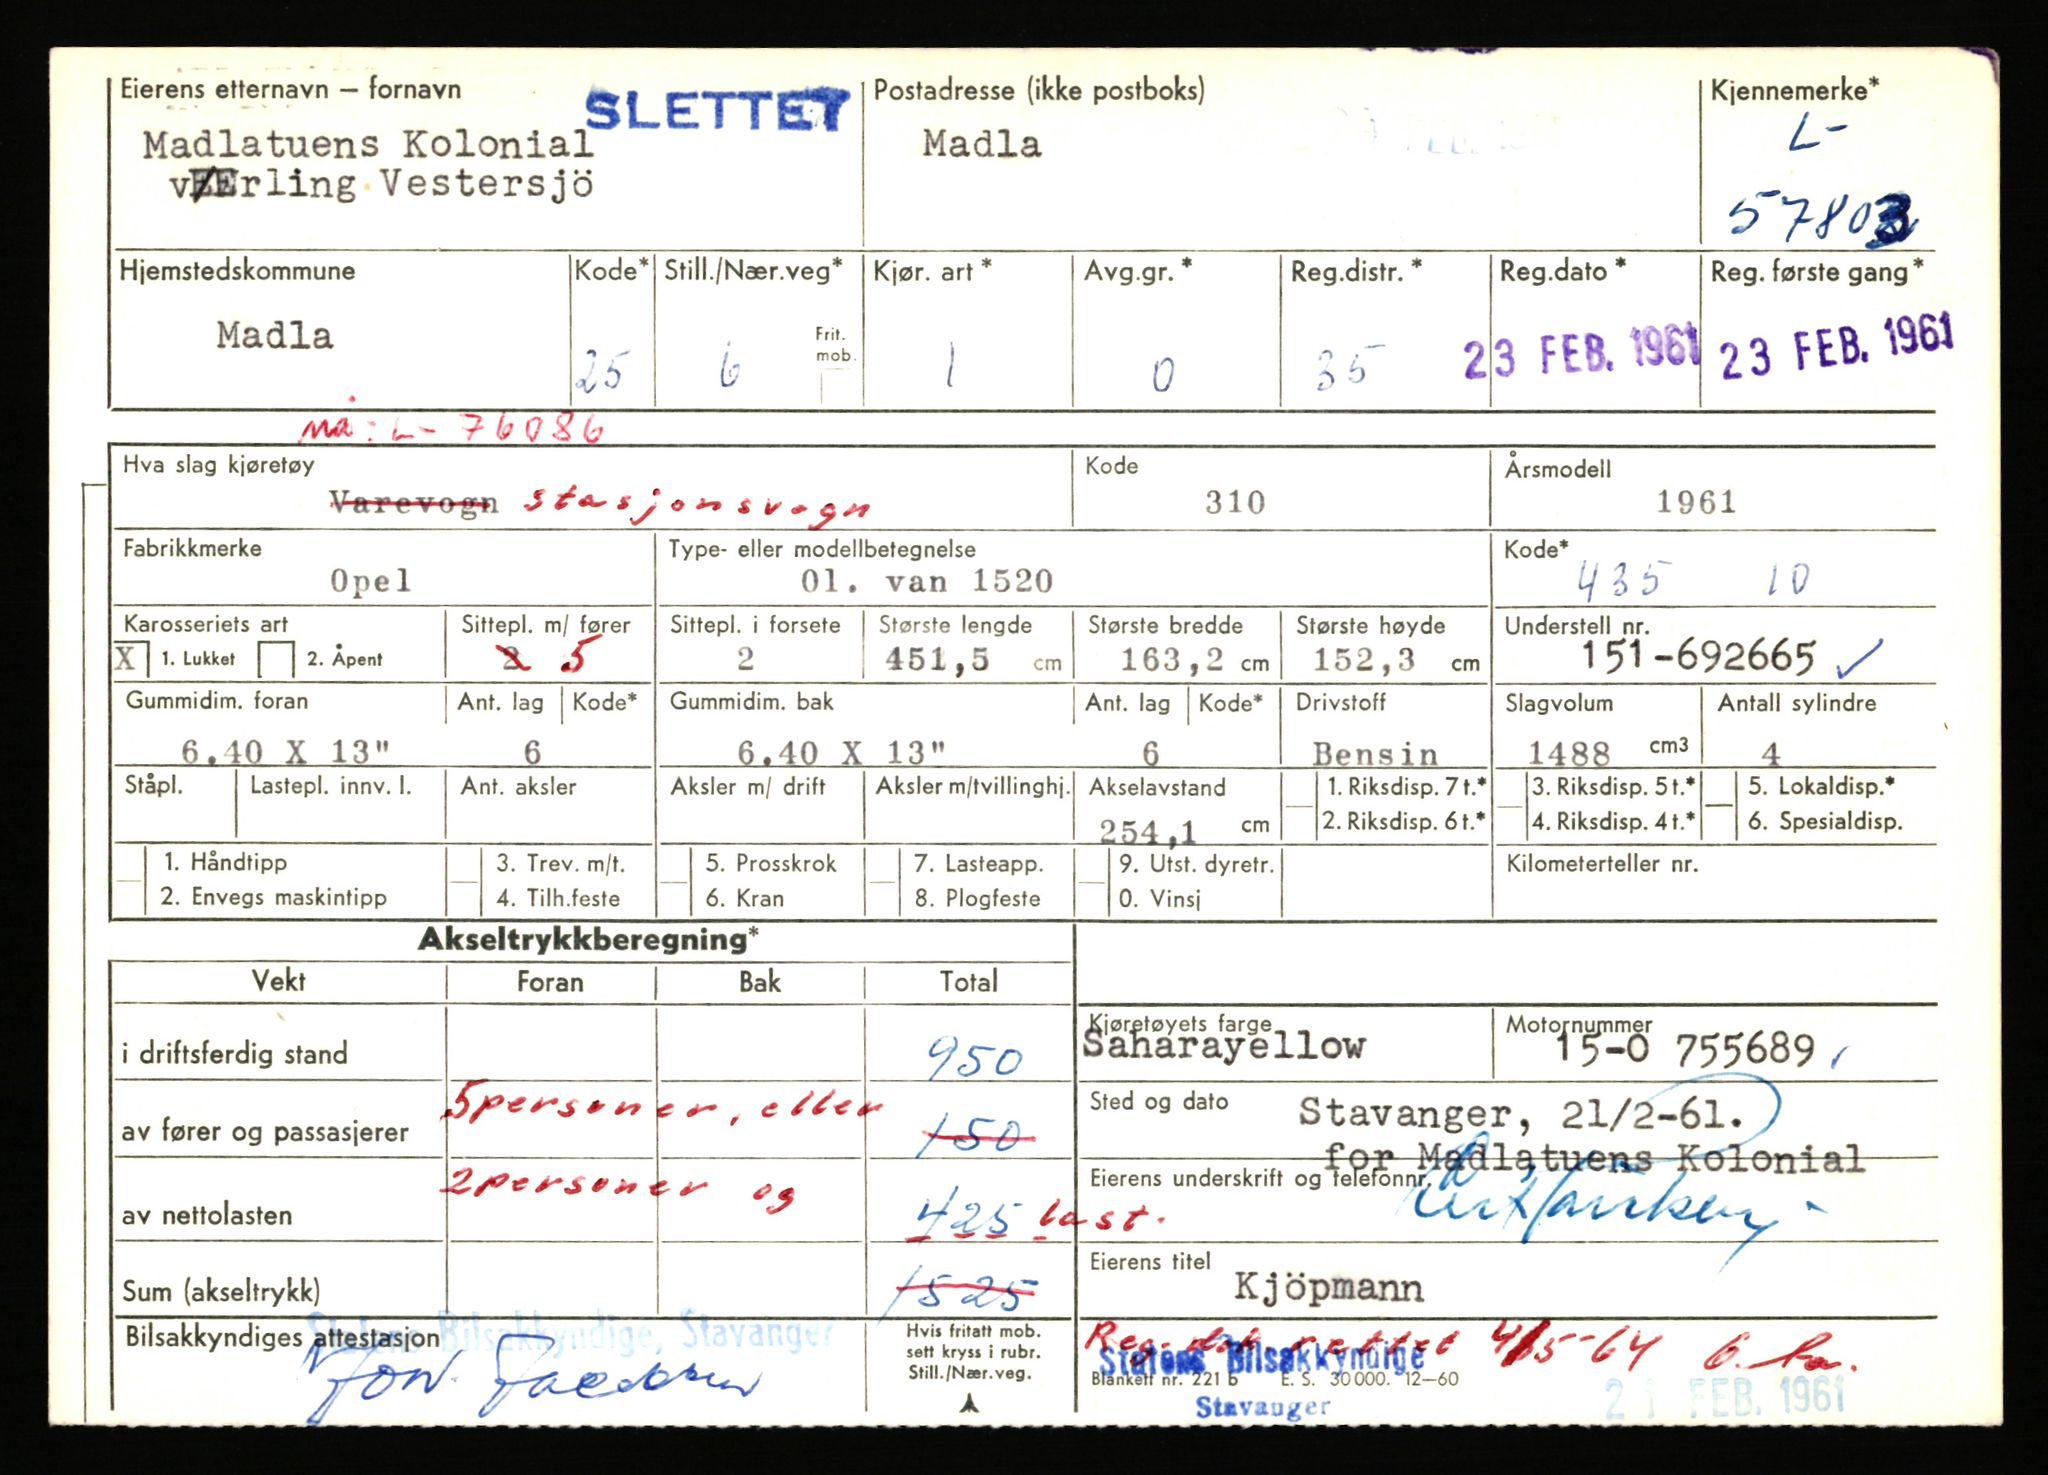 Eierens etternavn – fornavn
SLETTET
Postadresse (ikke postboks)
Kjennemerke*
Madlatuens Kolonial
v/Erling Vestersjö
Madla
L-
57803
Hjemstedskommune
Kode*
Still./Nær.veg*
Kjør. art *
Avg.gr. *
Reg.distr. *
Reg.dato *
Reg. første gang*
Madla
25
6
Frit. mob.
1
0
35
23 FEB. 1961
23 FEB. 1961
nå: L- 76086
Hva slag kjøretøy
Kode
Årsmodell
Varevogn stasjonsvogn
310
1961
Fabrikkmerke
Type- eller modellbetegnelse
Kode*
Opel
Ol. van 1520
435 10
Karosseriets art
Sittepl. m/ fører
Sittepl. i forsete
Største lengde
Største bredde
Største høyde
Understell nr.
X 1. Lukket
2. Åpent
2 5
2
451,5 cm
163,2 cm
152,3 cm
151-692665
Gummidim. foran
Ant. lag
Kode*
Gummidim. bak
Ant. lag
Kode*
Drivstoff
Slagvolum
Antall sylindre
6.40 X 13"
6
6.40 X 13"
6
Bensin
1488 cm3
4
Ståpl.
Lastepl. innv. l.
Ant. aksler
Aksler m/ drift
Aksler m/tvillinghj.
Akselavstand
254,1 cm
1. Riksdisp. 7 t.*
2. Riksdisp. 6 t.*
3. Riksdisp. 5 t.*
4. Riksdisp. 4 t.*
5. Lokaldisp.*
6. Spesialdisp.
1. Håndtipp
2. Envegs maskintipp
3. Trev. m/t.
4. Tilh.feste
5. Prosskrok
6. Kran
7. Lasteapp.
8. Plogfeste
9. Utst. dyretr.
0. Vinsj
Kilometerteller nr.
Akseltrykkberegning*
Vekt
Foran
Bak
Total
i driftsferdig stand
950
Kjøretøyets farge
Saharayellow
Motornummer
15-0 755689
av fører og passasjerer
5 personer, eller
150
Sted og dato
Stavanger, 21/2-61.
for Madlatuens Kolonial
av nettolasten
2 personer og
425 last.
Eierens underskrift og telefonnr.
Sum (akseltrykk)
1525
Eierens titel
Kjöpmann
Bilsakkyndiges attestasjon
Statens Bilsakkyndige, Stavanger
Hvis fritatt mob.
sett kryss i rubr.
Still./Nær.veg.
Reg. dok. rettet 4/5-64
Statens Bilsakkyndige
Stavanger
Blankett nr. 221 b E. S. 30 000. 12–60
21 FEB. 1961